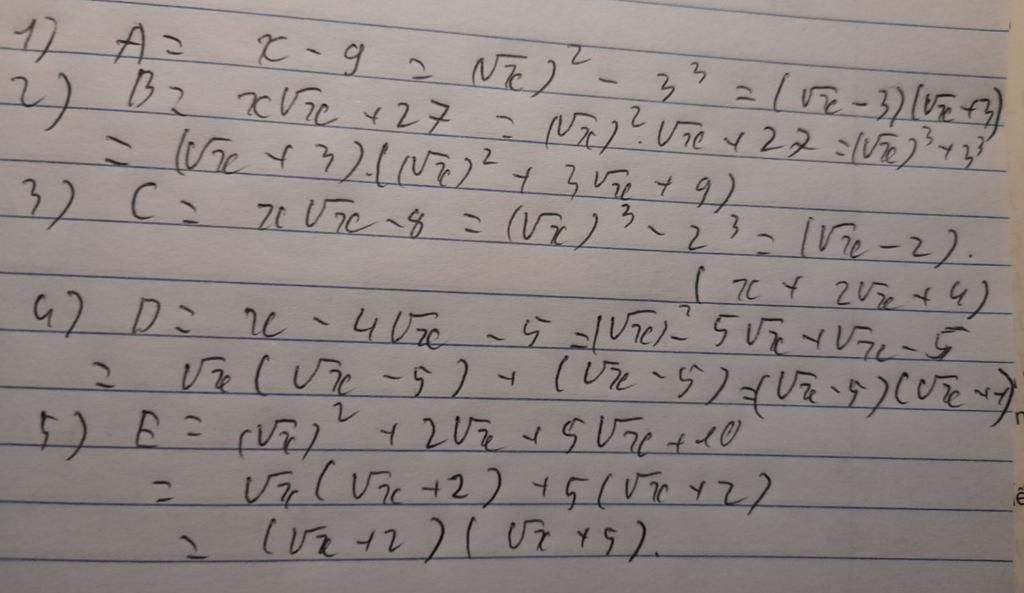 1) A = x - 9 = (√x)² - 3³ = (√x - 3)(√x + 3)
2) B = x√x + 27 = (√x)².√x + 27 = (√x)³ + 3³
= (√x + 3).((√x)² + 3√x + 9)
3) C = x√x - 8 = (√x)³ - 2³ = (√x - 2).
(x + 2√x + 4)
4) D = x - 4√x - 5 = (√x)² - 5√x + √x - 5
= √x(√x - 5) + (√x - 5) = (√x - 5)(√x + 1)
5) E = (√x)² + 2√x + 5√x + 10
= √x(√x + 2) + 5(√x + 2)
= (√x + 2)(√x + 5).